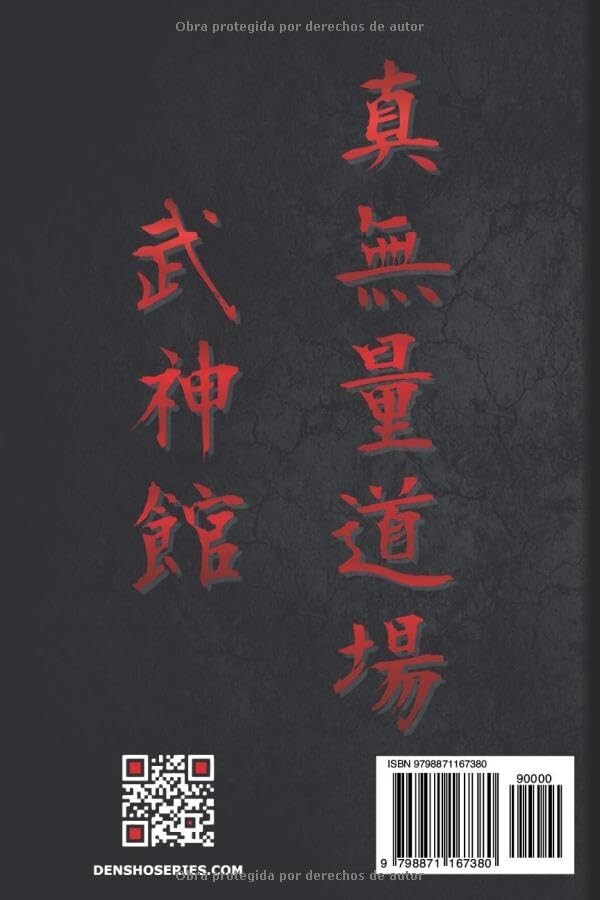 Obra protegida por derechos de autor
真無量道場
武神館
DENSHOSERIES.COM
ISBN 9798871167380
90000
9 798871 167380
Obra protegida por derechos de autor